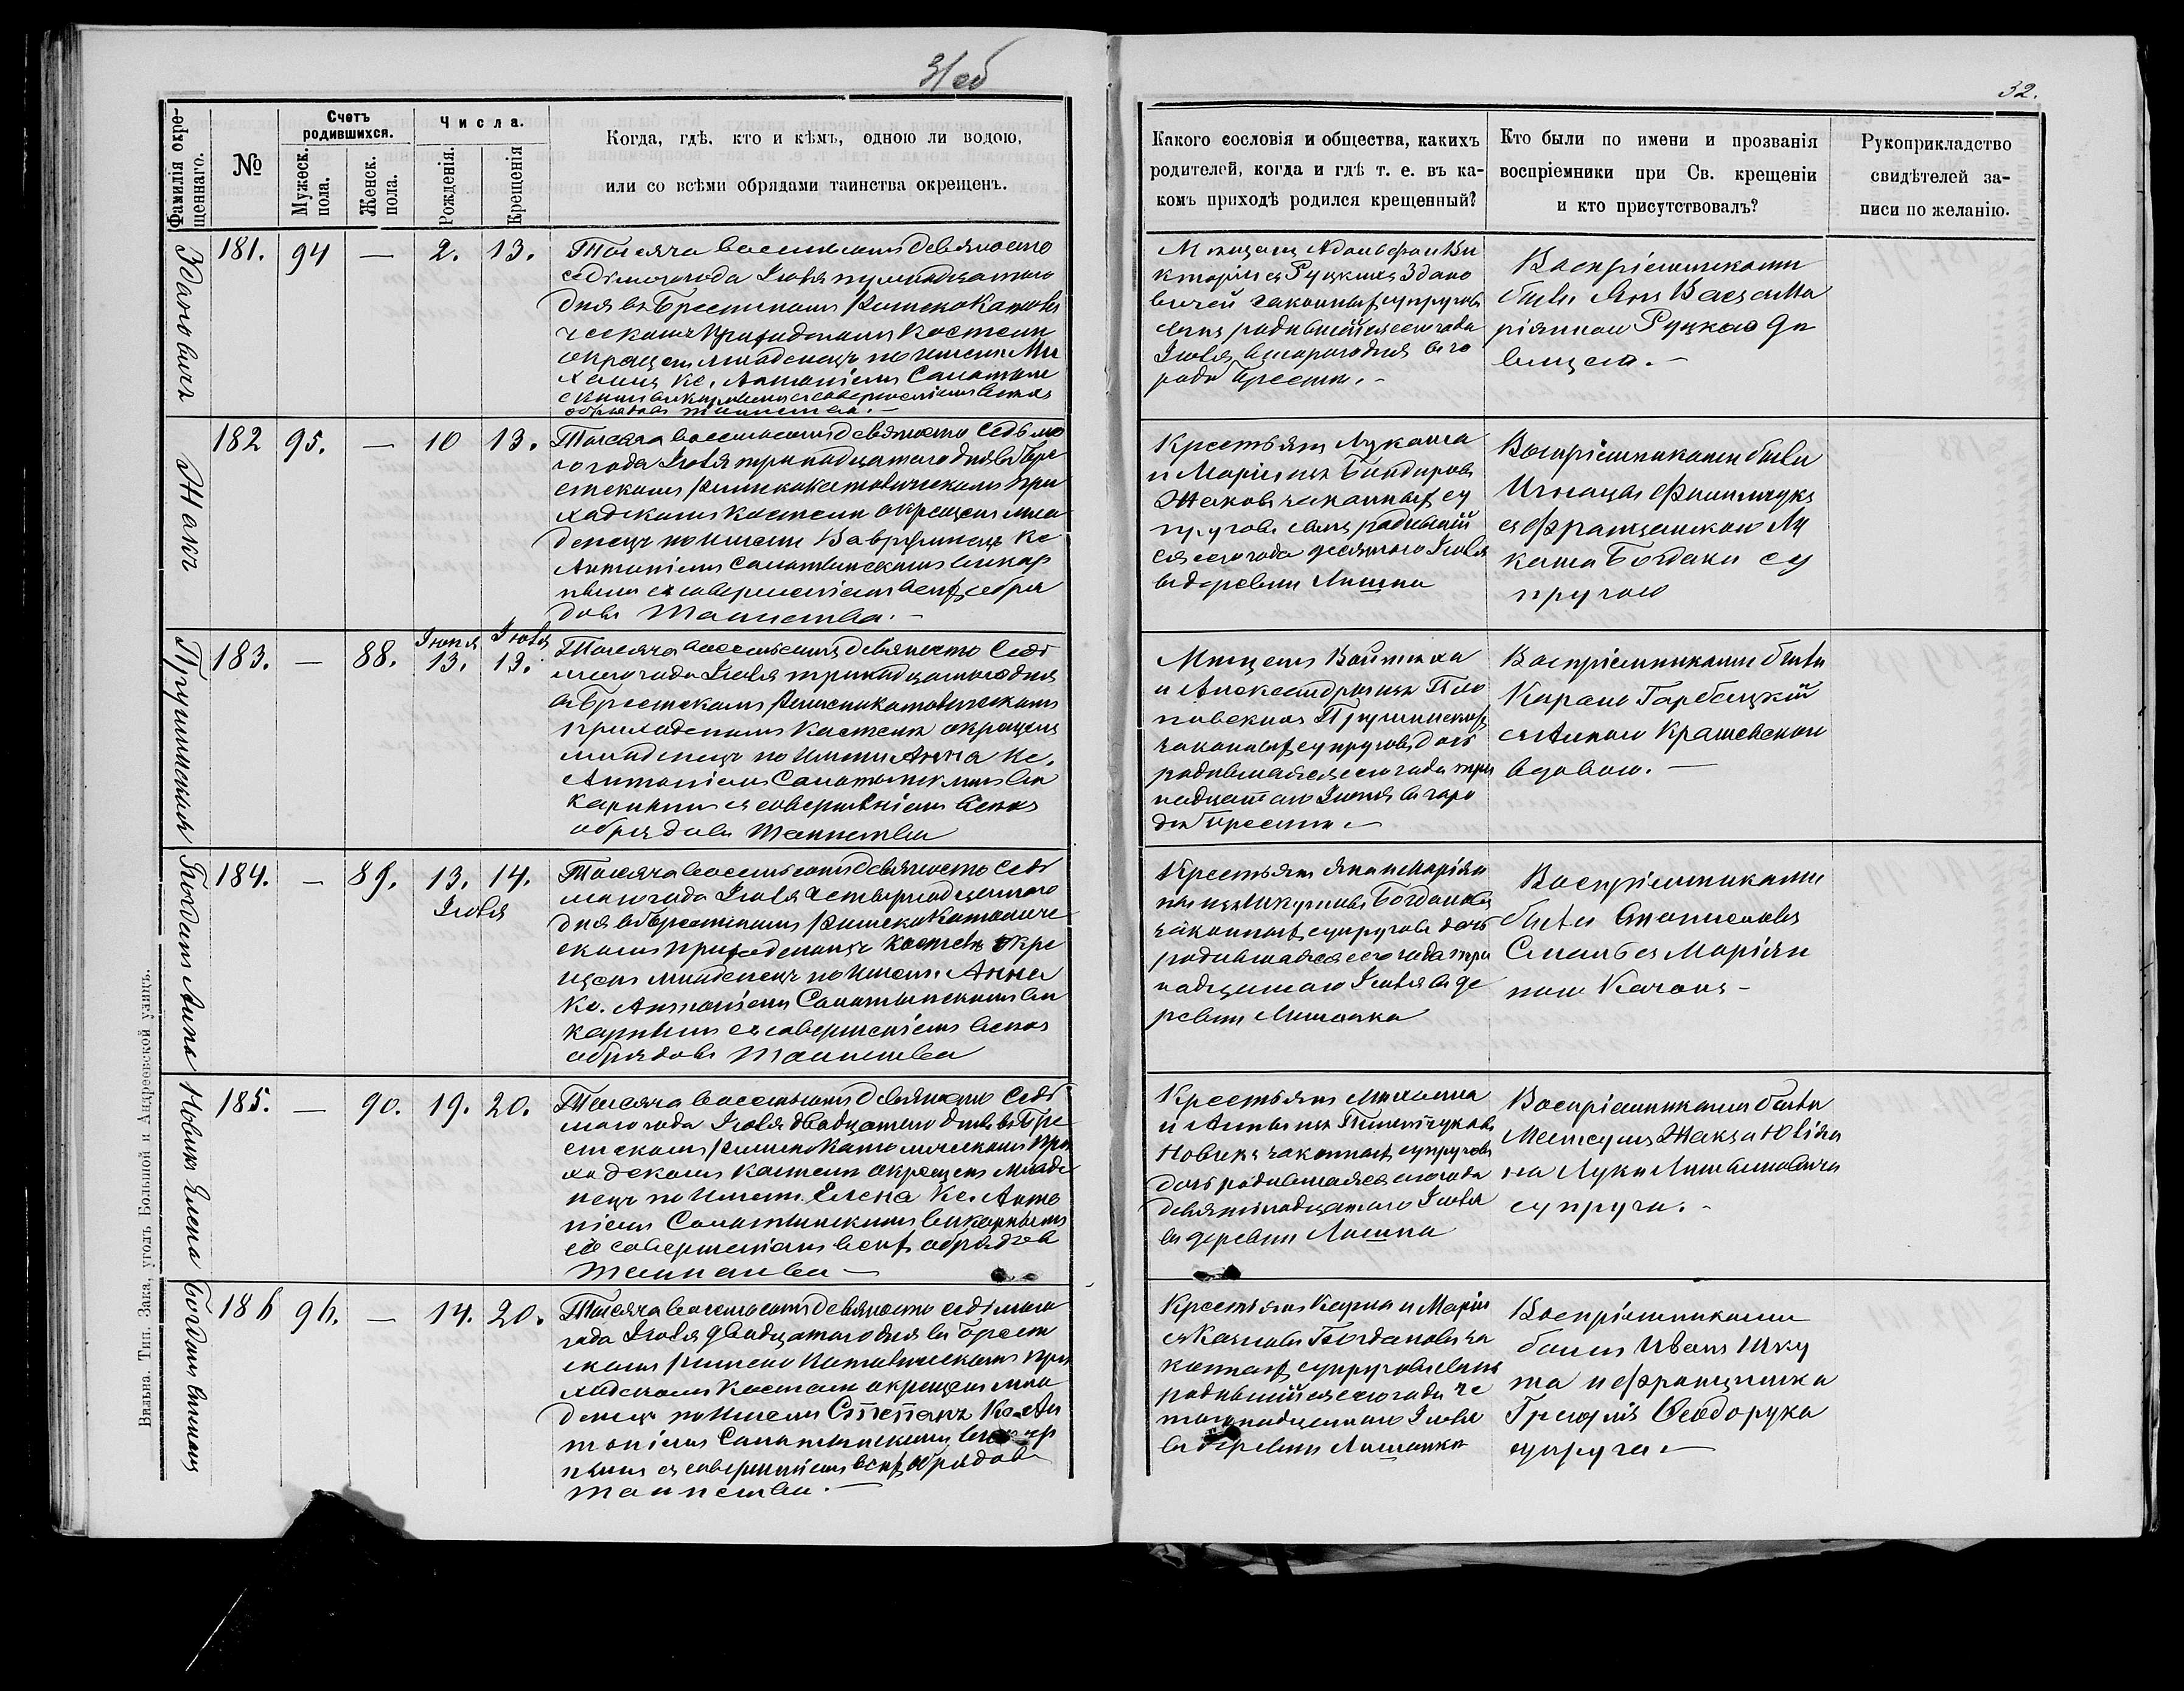 31об
32.
Фамилія окре-
щеннаго.
№
Счетъ
родившихся.
Мужеск.
пола.
Женск.
пола.
Числа.
Рожденія.
Крещенія
Когда, гдѣ, кто и кѣмъ, одною ли водою,
или со всѣми обрядами таинства окрещенъ.
Какого сословія и общества, какихъ
родителей, когда и гдѣ т. е. въ ка-
комъ приходѣ родился крещенный?
Кто были по имени и прозванія
воспріемники при Св. крещеніи
и кто присутствовалъ?
Рукоприкладство
свидѣтелей за-
писи по желанію.
Здановичъ
181. 94 — 2. 13.
Тысяча восемьсотъ девяносто
седьмого года Іюля тринадцатого
дня въ Брестскомъ Римско Католи
ческомъ Приходскомъ Костелѣ
окрещенъ младенецъ по имени Ми
хаилъ Кс. Антоніемъ
викарнымъ съ совершеніемъ всѣхъ
обрядовъ таинства. —
Мѣщанъ Адольфа и Ви
кторіи съ Руцкихъ Здано
вичей законныхъ супруговъ
сынъ родившійся сего года
Іюля второго дня въ го
родѣ Брестѣ. —
Воспріемниками
были Янъ съ Ма
ріянною Руцкою дѣ
вицею. —
Жакъ
182 95. — 10 13.
Тысяча восемьсотъ девяносто седьмо
го года Іюля тринадцатого дня въ Бре
стскомъ Римскокатолическомъ При
ходскомъ Костелѣ окрещенъ мла
денецъ по имени Вавржинецъ Кс
Антоніемъ викар
нымъ съ совершеніемъ всѣхъ обря
довъ Таинства. —
Крестьянъ Лукаша
и Маріи изъ
Жаковъ законныхъ су
пруговъ сынъ родивший
ся сего года десятого Іюля
въ деревни
Воспріемниками были
Игнацы
съ Францишкою Лу
каша Богдана су
пругою
Пружинская
183. — 88. Іюня 13. Іюля 13.
Тысяча восемьсотъ девяносто седь
мого года Іюля тринадцатого дня
въ Брестскомъ Римскокатолическомъ
приходскомъ Костелѣ окрещенъ
младенецъ по имени Анна Кс.
Антоніемъ ви
карнымъ съ совершеніемъ всѣхъ
обрядовъ Таинства
Мѣщанъ Войтеха
и Александры изъ
Пружинскихъ
законныхъ супруговъ дочь
родившаяся сего года три
надцатаго Іюня въ горо
дѣ Брестѣ. —
Воспріемниками были
Кароль Гарбецкій
съ Анною Крашевскою
вдовою. —
Богданъ Анна
184. — 89. 13. 14. Іюля
Тысяча восемьсотъ девяносто седь
мого года Іюля четырнадцатого
дня въ Брестскомъ Римско Католиче
скомъ приходскомъ костелѣ окре
щенъ младенецъ по имени Анна
Кс. Антоніемъ ви
карнымъ съ совершеніемъ всѣхъ
обрядовъ Таинства
Крестьянъ Яна и Маріян
ны изъ Богдановъ
законныхъ супруговъ дочь
родившаяся сего года три
надцатого Іюля въ де
ревни
Воспріемниками
были Станиславъ
съ Маріян
ною —
Новикъ Елена
185. — 90. 19. 20.
Тысяча восемьсотъ девяносто седь
мого года Іюля двадцатого дня въ Бре
стскомъ Римско Католическомъ При
ходскомъ Костелѣ окрещенъ младе
нецъ по имени Елена Кс. Анто
ніемъ викарнымъ
съ совершеніемъ всѣхъ обрядовъ
Таинства —
Крестьянъ Михаила
и Анны изъ
Новикъ законныхъ супруговъ
дочь родившаяся сего года
девятнадцатого Іюля
въ деревни
Воспріемниками были
Жакъ и Юлія
на Луки
супруга. —
Богданъ Степанъ
186 96. — 14. 20.
Тысяча восемьсотъ девяносто седьмого
года Іюля двадцатого дня въ Брест
скомъ Римско Католическомъ При
ходскомъ Костелѣ окрещенъ мла
денецъ по имени Степанъ Кс. Ан
тоніемъ викар
нымъ съ совершеніемъ всѣхъ обрядовъ
таинства. —
Крестьянъ Карла и Маріи
Богдановъ за
конныхъ супруговъ сынъ
родившійся сего года че
тырнадцатого Іюля
въ деревни
Воспріемниками
были Иванъ Шку
та и Францишка
Григорія Ѳеодорука
супруга —
Вильна. Тип. Зака, уголъ Большой и Андреевской улицъ.